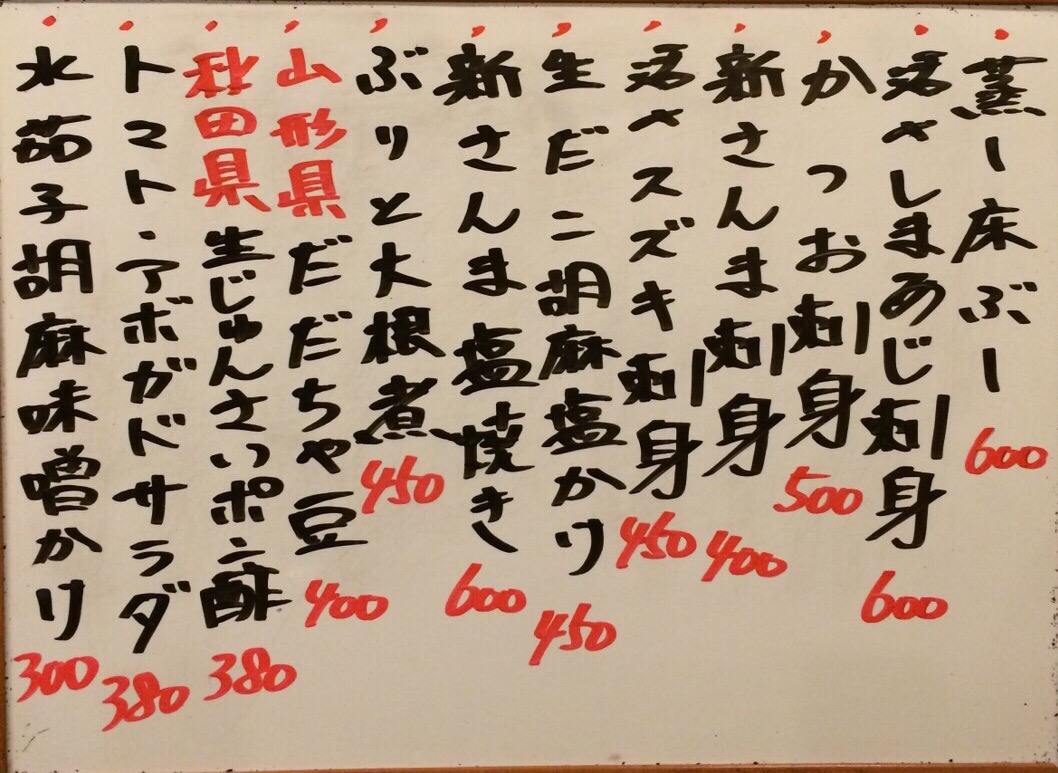 蒸し床ぶし 600
活〆しまあじ刺身 600
かつお刺身 500
新さんま刺身 400
活〆スズキ刺身 450
生だこ胡麻塩かけ 450
新さんま塩焼き 600
ぶりと大根煮 450
山形県だだちゃ豆 400
秋田県生じゅんさいポン酢 380
トマト・アボガドサラダ 380
水茄子胡麻味噌かけ 300